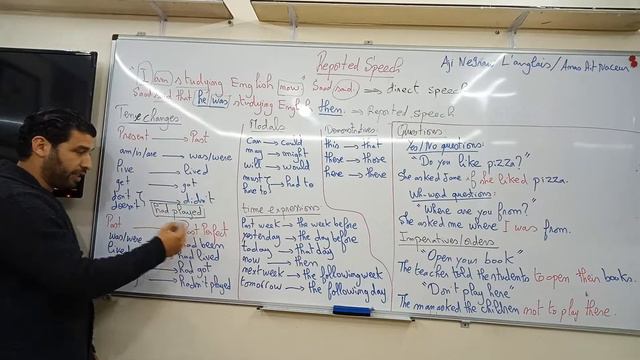 Reported Speech
Aji Ne9raw L'anglais/Anas Ait Naceur
"I am studying English now" Saad said. => direct speech
Saad said that he was studying English then. => Reported speech
Tense changes
Present → Past
am/is/are → was/were
live → lived
get → got
don't
doesn't } → didn't
had played
Past → Past Perfect
was/were → had been
→ had lived
→ had got
→ hadn't played
Modals
can → could
may → might
will → would
must
have to } → had to
time expressions
Past week → the week before
yesterday → the day before
today → that day
now → then
next week → the following week
tomorrow → the following day
Demonstratives
this → that
these → those
here → there
Questions
Yes/No questions:
"Do you like pizza?"
She asked Jane if she liked pizza.
Wh-word questions:
"Where are you from?"
She asked me where I was from.
Imperatives/orders
"Open your book"
The teacher told the students to open their books.
"Don't play here"
The man asked the children not to play there.